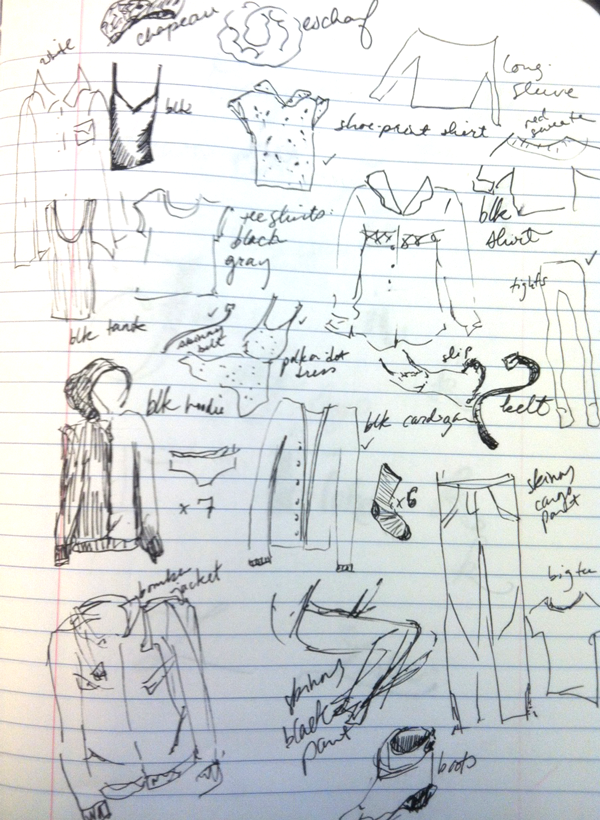 chapeau
escharf
white
long
sleeve
blk
shoe-print shirt
red
sweater
blk
shirt
tee shirts:
black
gray
tights
blk tank
skinny
belt
polka dot
dress
slip
blk hoodie
blk cardigan
belt
x 7
x6
skinny
cargo
pant
bomber
jacket
big tee
skinny
black
pant
boots